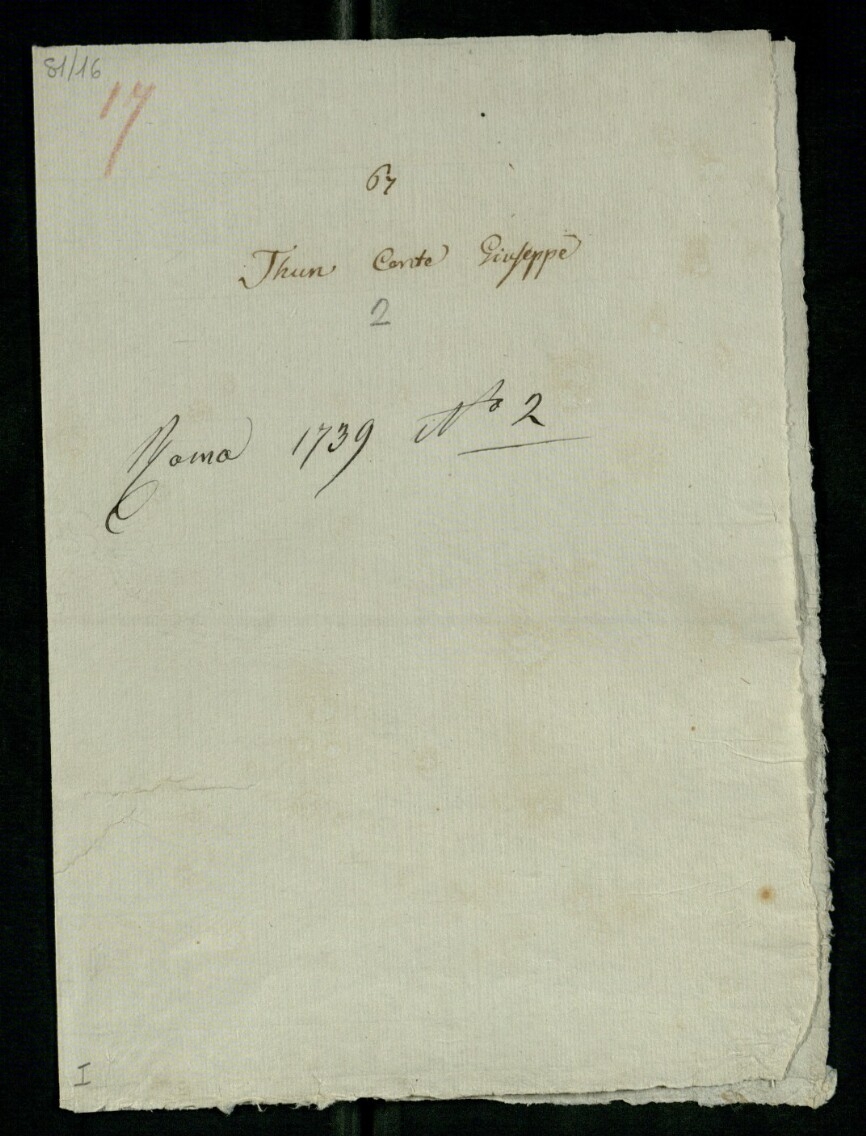 81/16
17
67
Thun Conte Giuseppe
2
Roma 1739 No 2
I